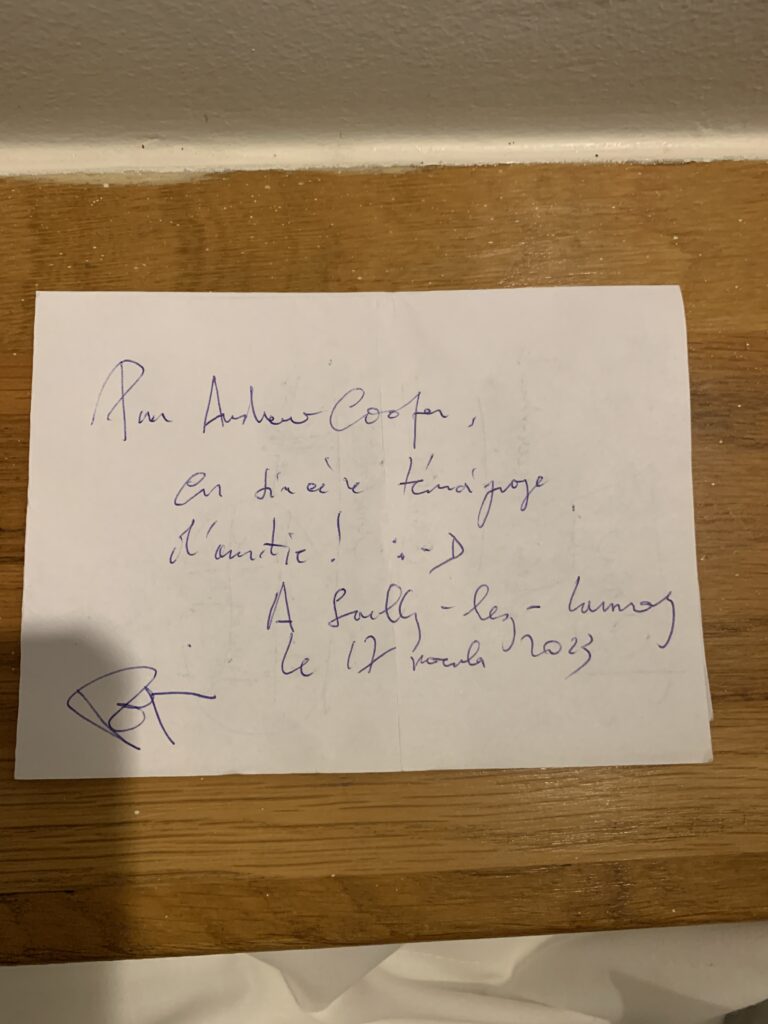 Pour Andrew Cooper,
en sincère témoignage
d'amitié ! :-D
A Sailly-lez-Lannoy
le 17 novembre 2023